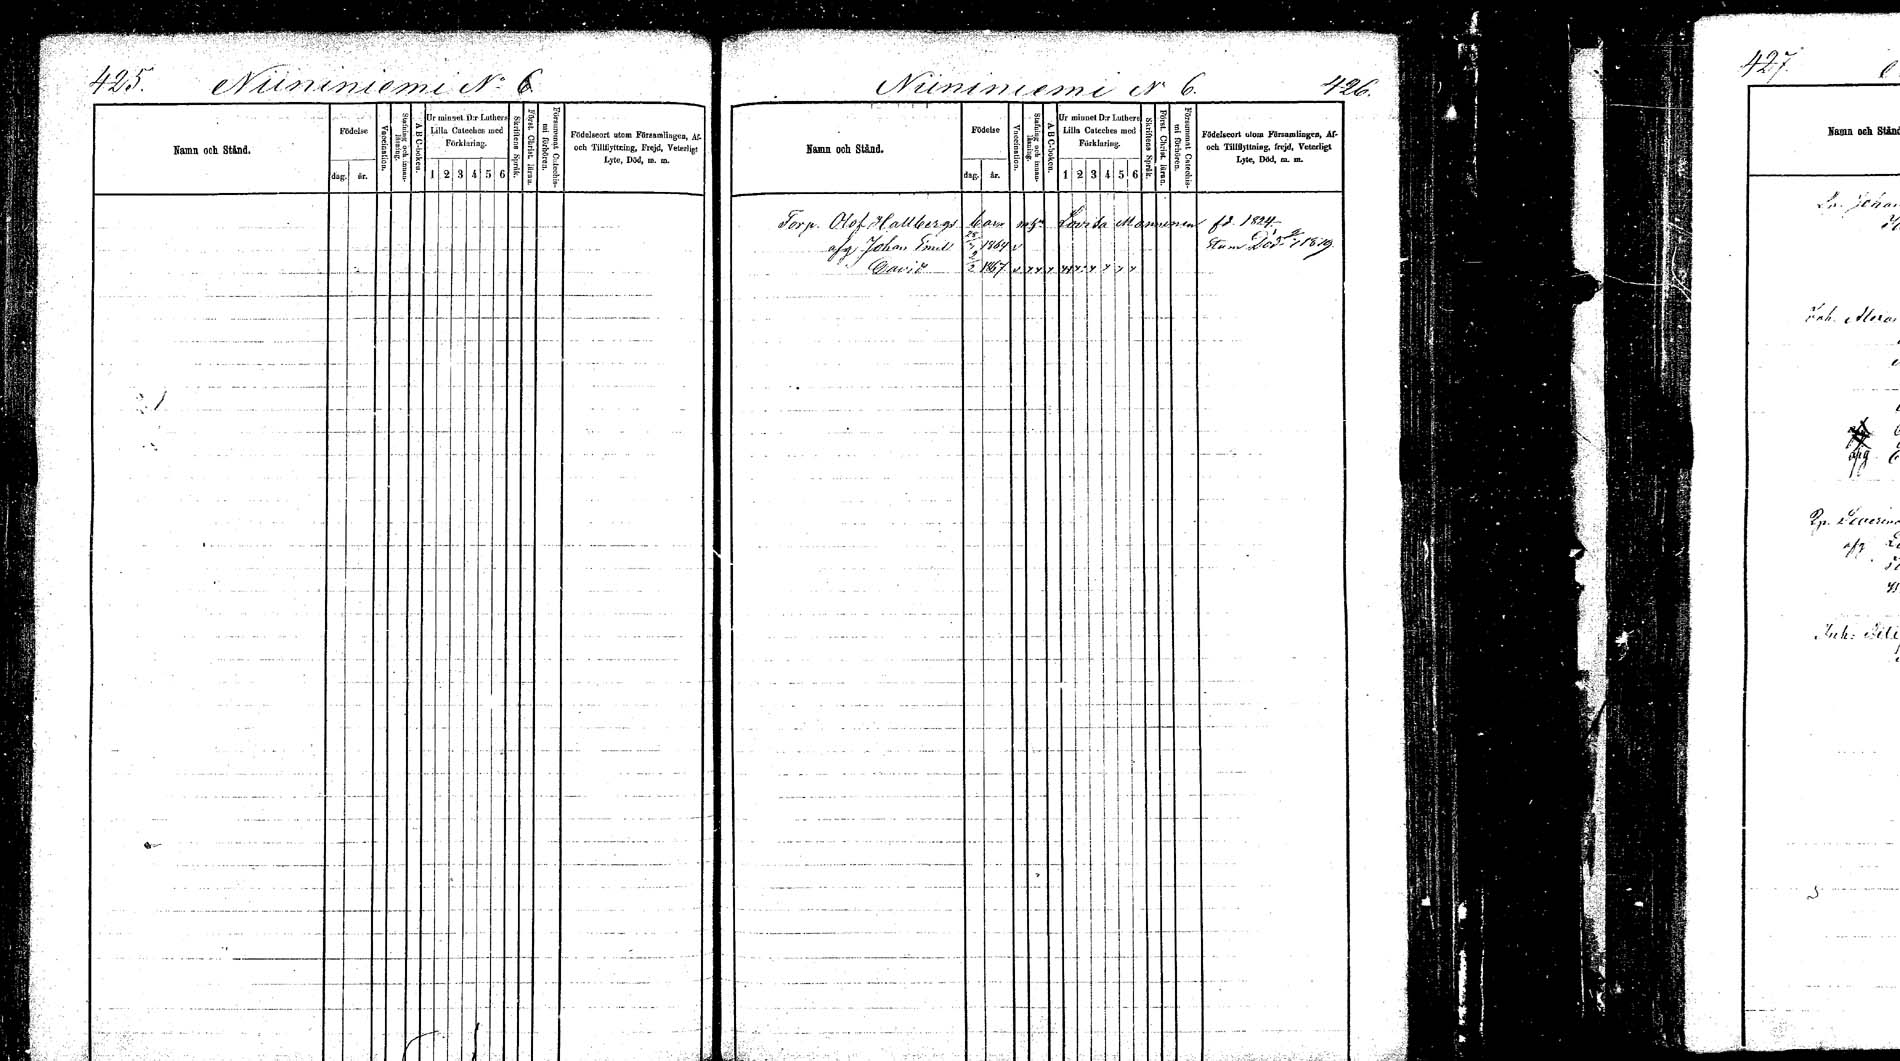 425.
Niininiemi No 6
Namn och Stånd.
Födelse
dag. år.
Vaccination.
Stafning och innanläsning.
A B C-boken.
Ur minnet D:r Luthers Lilla Cateches med Förklaring.
1 2 3 4 5 6
Skriftens Språk.
Först. Christ. läran.
Försummat Catechismi förhören.
Födelseort utom Församlingen, Af- och Tillflyttning, Frejd, Veterligt Lyte, Död, m. m.
Niininiemi N 6.
426.
Namn och Stånd.
Födelse
dag. år.
Vaccination.
Stafning och innanläsning.
A B C-boken.
Ur minnet D:r Luthers Lilla Cateches med Förklaring.
1 2 3 4 5 6
Skriftens Språk.
Först. Christ. läran.
Försummat Catechismi förhören.
Födelseort utom Församlingen, Af- och Tillflyttning, frejd, Veterligt Lyte, Död, m. m.
Torp. Olof Hallbergs barn Lovisa Manninen fd. 1824.
Johan Emil 1864 Död
David 1867
427.
Namn och Stånd